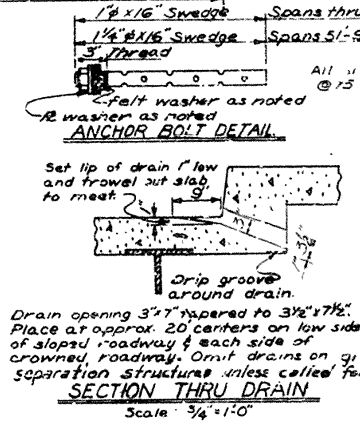 1"φ x 16" Swedge Spans thru
1¼"φ x 16" Swedge Spans 51'-
3" Thread
felt washer as noted
washer as noted
ANCHOR BOLT DETAIL
All
Set lip of drain 1" low
and trowel out slab
to meet.
9"
1"
3"
Drip groove
around drain.
Drain opening 3"x7" tapered to 3½"x7½".
Place at approx. 20' centers on low side
of sloped roadway & each side of
crowned roadway. Omit drains on
separation structures unless called
SECTION THRU DRAIN
Scale: ¾"=1'-0"